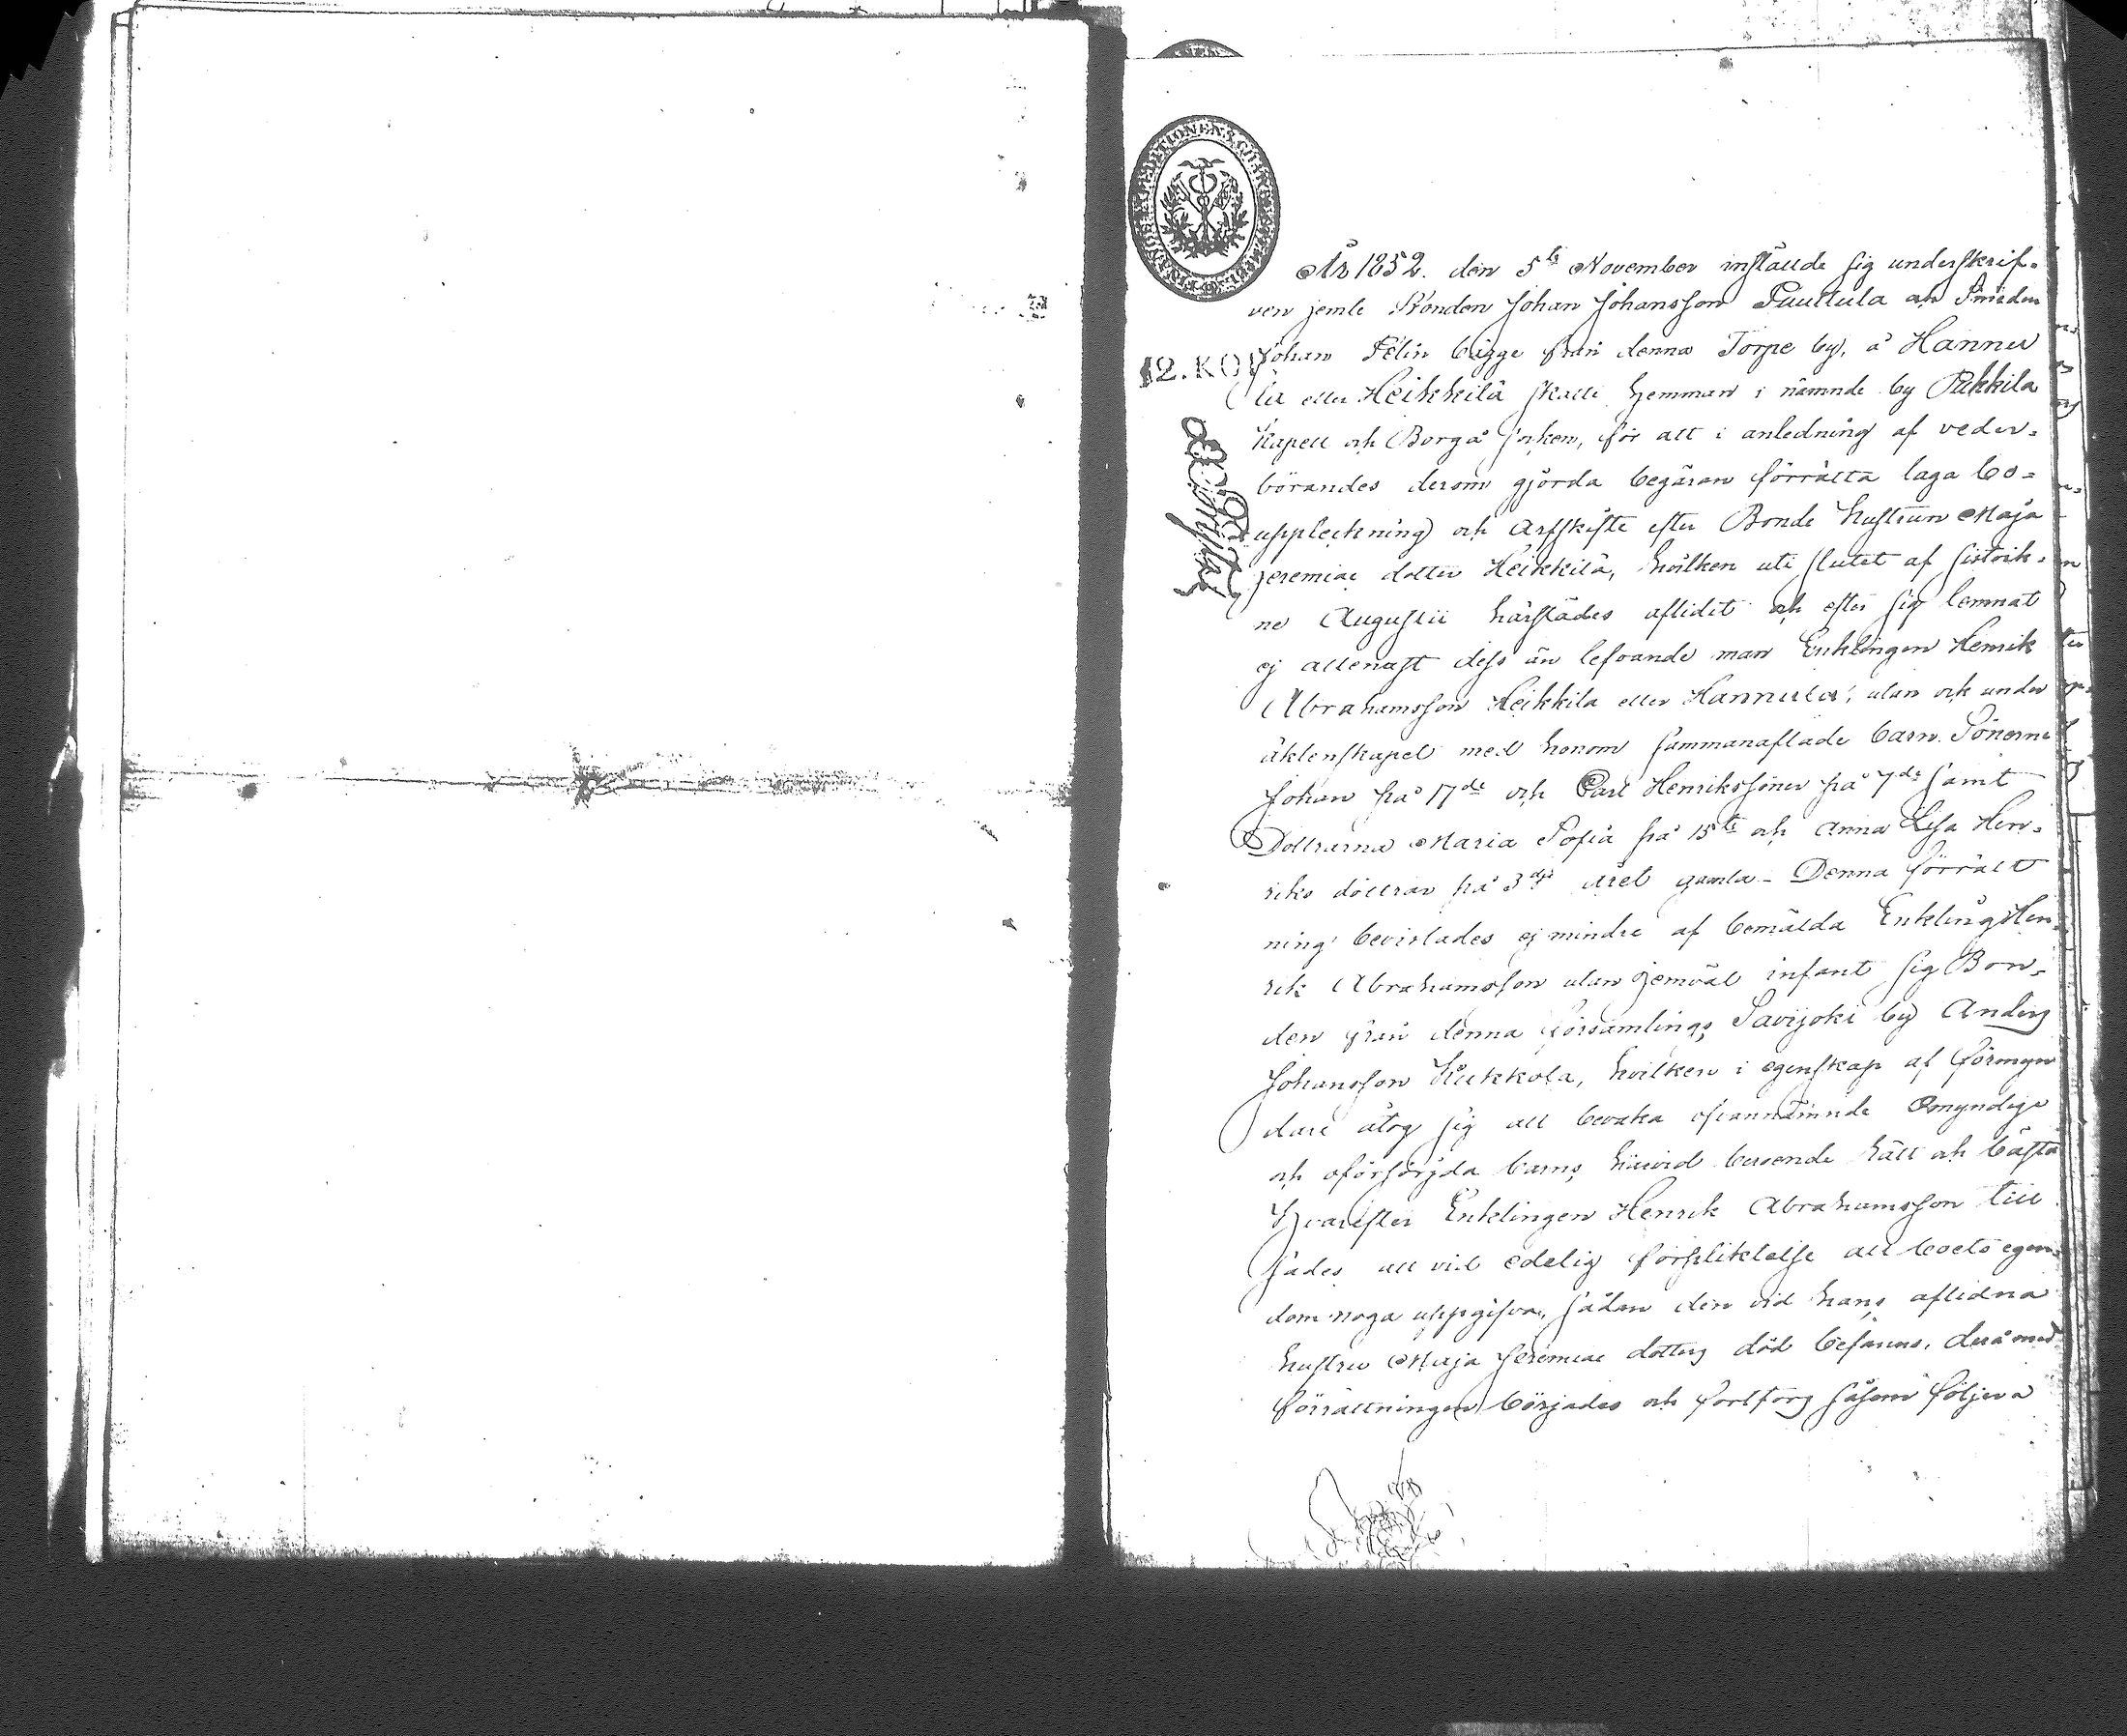 FINANS EXPEDITIONENS CHARTA
12. KOP
År 1852. den 5te November inställde sig underskrif-
ven jemte Bonden Johan Johansson Puuttula och Smeden
Johan Felin bägge från denna Torpe by, å Hannu
la eller Heikkilä skatte hemman i nämnde by Pukkila
Kapell och Borgå socken, för att i anledning af veder-
börandes derom gjorda begäran förrätta laga bo-
uppteckning och Arfskifte efter Bonde hustrun Maja
Jeremiae dotter Heikkilä, hvilken uti slutet af sistvik-
ne Augustii härstädes aflidit och efter sig lemnat
ej allenast dess än lefvande man Enklingen Henrik
Abrahamsson Heikkilä eller Hannula, utan och under
äktenskapet med honom sammanaflade barn. Sönerne
Johan på 17de och Carl Henrikssöner på 7de samt
Döttrarna Maria Sofia på 15te och Anna Lisa Hen-
riks döttrar på 3dje året gamla. Denna förrätt
ning bevistades ej mindre af bemälda Enkling Hen-
rik Abrahamsson utan jemväl infant sig Bon-
den från denna församlings Savijoki by Anders
Johansson Kukkola, hvilken i egenskap af förmyn
dare åtog sig att bevaka ofvannämnde Omyndige
och oförsörjda barns härvid beroende rätt och bästa
Hvarefter Enklingen Henrik Abrahamsson till
sades att vid edelig förpliktelse all boets egen-
dom noga uppgifva, sådan den vid hans aflidna
hustru Maja Jeremiae dotters död befanns, derå med
förrättningen börjades och fortforg såsom följer: